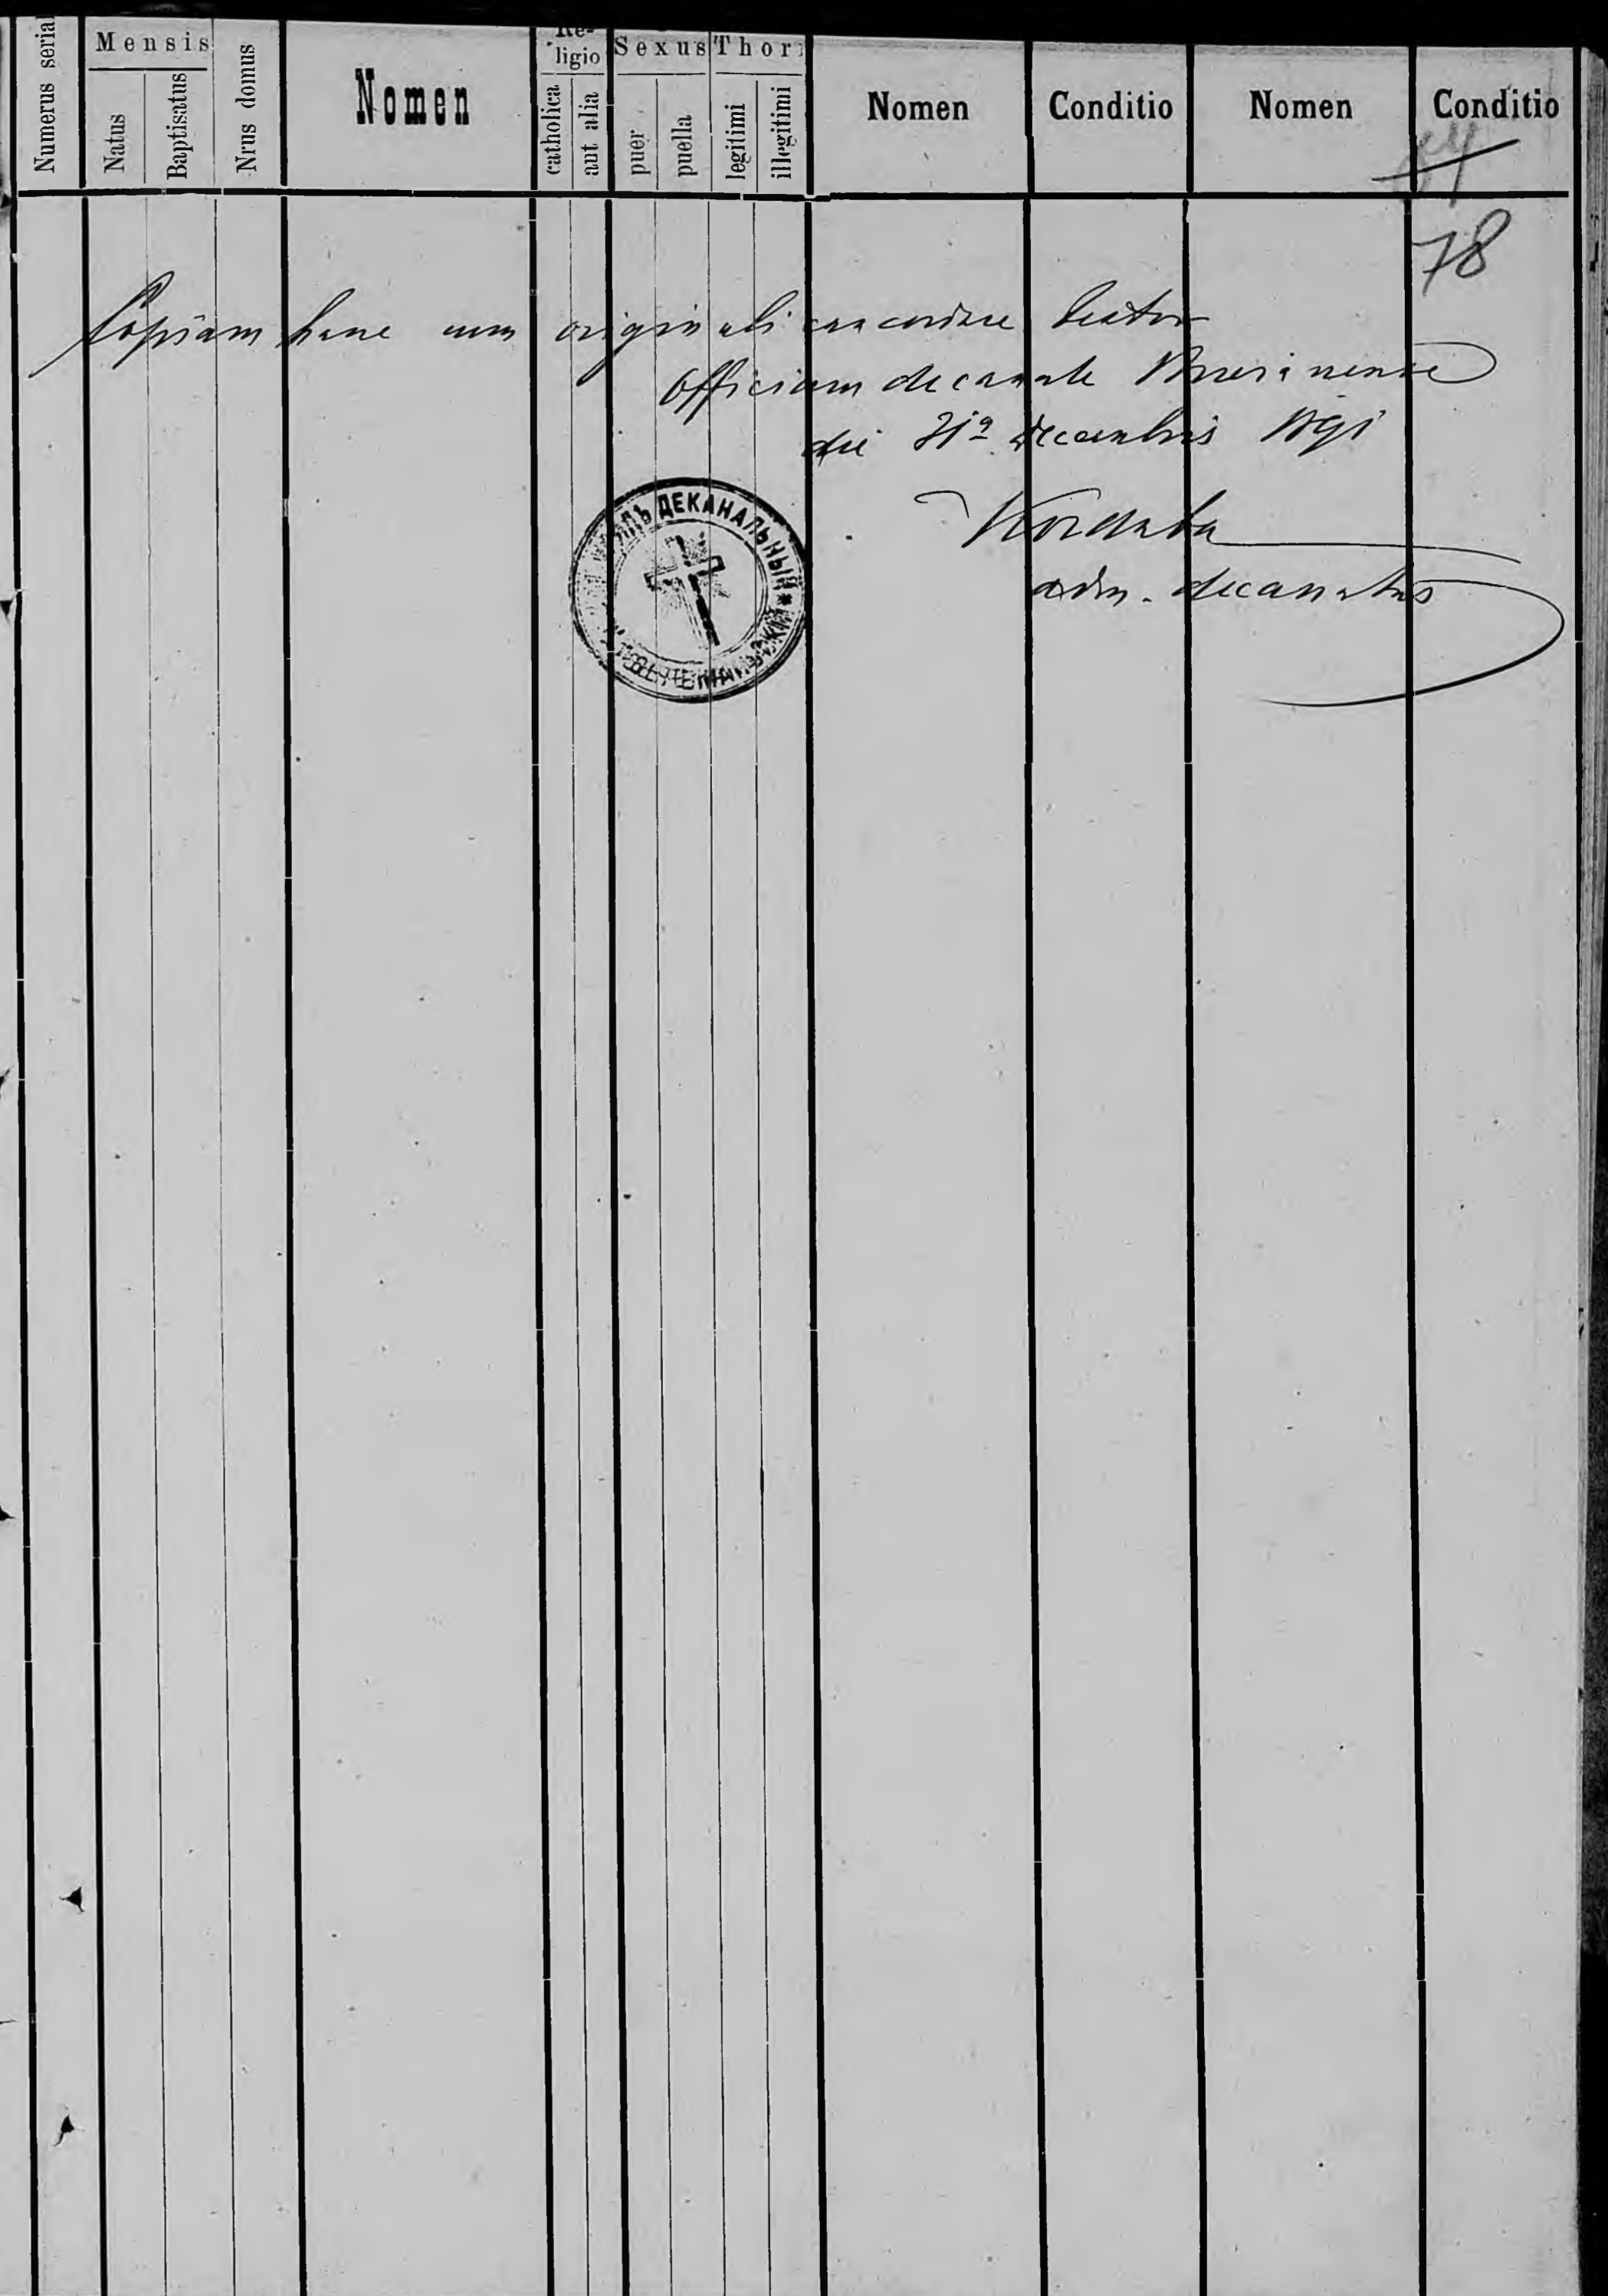 Numerus serial
Mensis
Natus
Baptisatus
Nrus domus
Nomen
Re-
ligio
catholica
aut alia
Sexus
puer
puella
Thori
legitimi
illegitimi
Nomen
Conditio
Nomen
Conditio
78
Copiam hanc cum originali concordare
Officium decanale
die 31a Decembris
adm. decanatus
ДЕКАНАЛЬНЫЙ